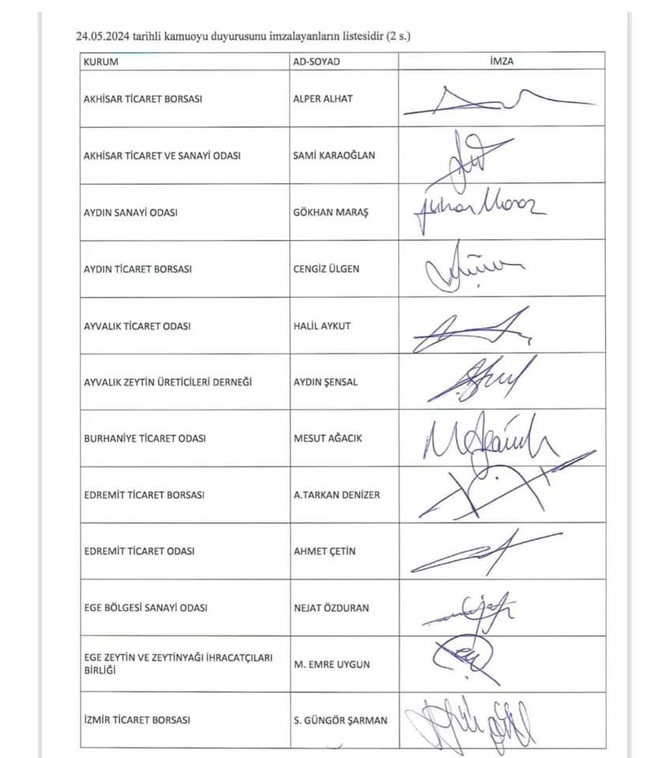 24.05.2024 tarihli kamuoyu duyurusunu imzalayanların listesidir (2 s.)
KURUM AD-SOYAD İMZA
AKHİSAR TİCARET BORSASI ALPER ALHAT
AKHİSAR TİCARET VE SANAYİ ODASI SAMİ KARAOĞLAN
AYDIN SANAYİ ODASI GÖKHAN MARAŞ
AYDIN TİCARET BORSASI CENGİZ ÜLGEN
AYVALIK TİCARET ODASI HALİL AYKUT
AYVALIK ZEYTİN ÜRETİCİLERİ DERNEĞİ AYDIN ŞENSAL
BURHANİYE TİCARET ODASI MESUT AĞACIK
EDREMİT TİCARET BORSASI A.TARKAN DENİZER
EDREMİT TİCARET ODASI AHMET ÇETİN
EGE BÖLGESİ SANAYİ ODASI NEJAT ÖZDURAN
EGE ZEYTİN VE ZEYTİNYAĞI İHRACATÇILARI
BİRLİĞİ M. EMRE UYGUN
İZMİR TİCARET BORSASI S. GÜNGÖR ŞARMAN